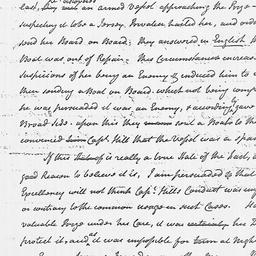 last, an armed Vessel approaching the Prze
suspecting it to be a Jersey Privateer hailed her, and orde
send her Boat on Board; they answered in English th
Boat was out of Repair; this Circumstance increas
Suspicions of her being an Enemy & induced him to
their sending a Boat on Board, which not being comp
he was persuaded it was an Enemy, & accordingly gave
Broad side; upon this they sent a Boat to the
convinced Captn Hill that the Vessel was a Spa
If this is really a true State of the Fact, a
good Reason to believe it is, I am persuaded that
Excellency will not think Captn Hills Conduct was imp
or contrary to the common usage in such Cases. Ha
valuable Prize under his Care, it was certainly his D
protect it, and as it was impossible for him at Night